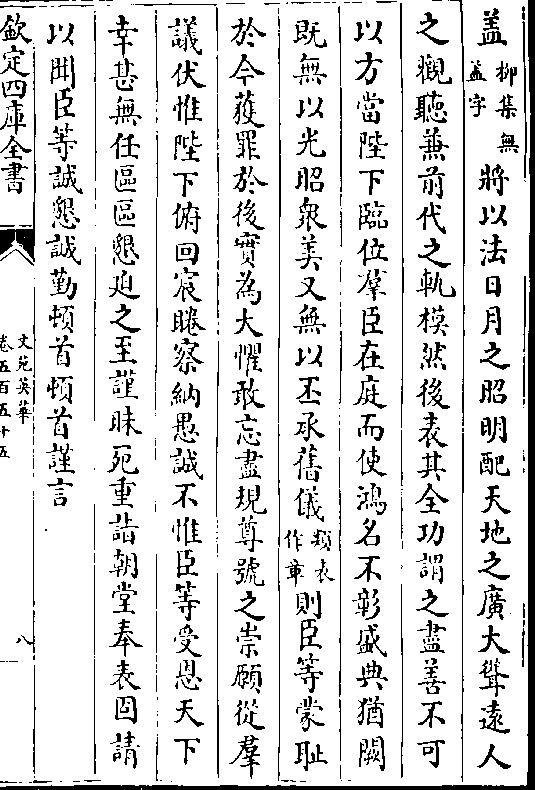 盖柳集無盖字將以法日月之昭明配天地之廣大聳遠人
之觀聽兼前代之軌模然後表其全功謂之盡善不可
以方當陛下臨位羣臣在庭而使鴻名不彰盛典猶闕
既無以光昭衆美又無以丕承舊儀類表作章則臣等蒙耻
於今獲罪於後實為大懼敢忘盡規尊號之崇願從羣
議伏惟陛下俯回宸睠察納愚誠不惟臣等受恩天下
幸甚無任區區懇迫之至謹昧死重詣朝堂奉表固請
以聞臣等誠懇誠勤頓首頓首謹言
欽定四庫全書
文苑英華
卷五百五十五
八